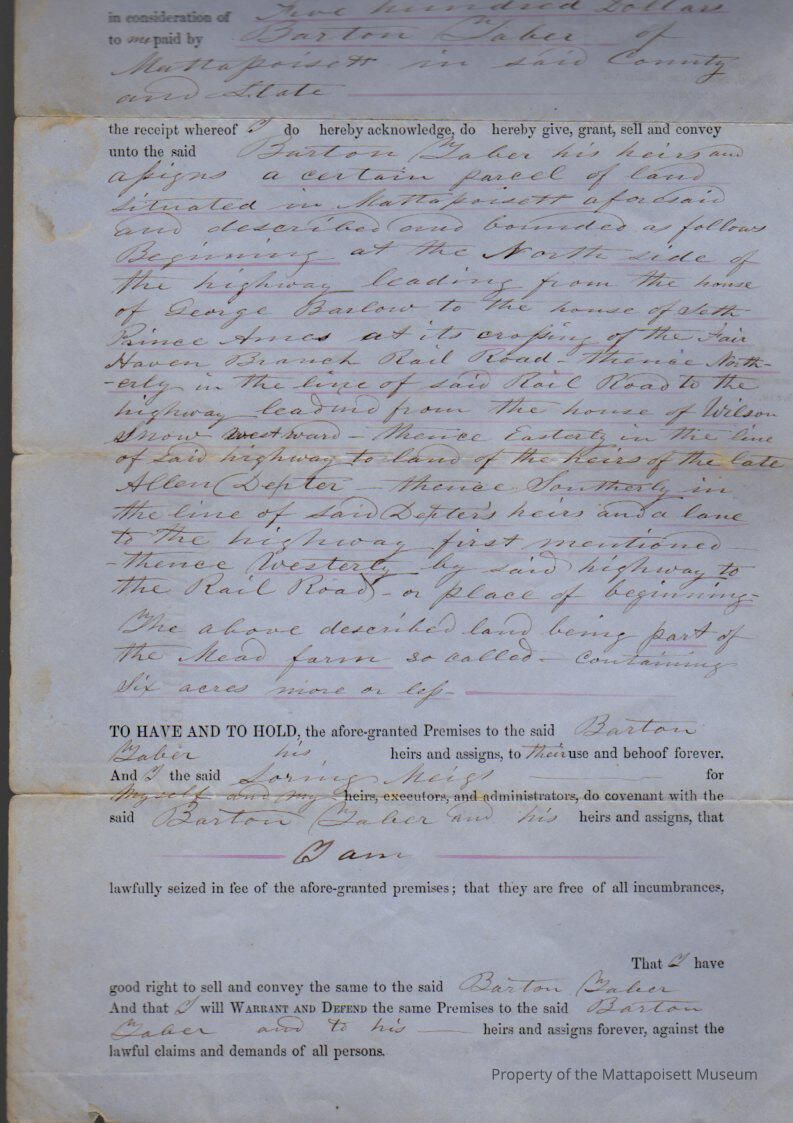 in consideration of Five hundred Dollars
to me paid by Barton Taber of
Mattapoisett in said County
and State
the receipt whereof I do hereby acknowledge, do hereby give, grant, sell and convey
unto the said Barton Taber his heirs and
assigns a certain parcel of land
situated in Mattapoisett aforesaid
and described and bounded as follows
Beginning at the North side of
the highway leading from the house
of George Barlow to the house of Seth
Prince Ames at its crossing of the Fair
Haven Branch Rail Road - thence North-
-erly in the line of said Rail Road to the
highway leading from the house of Wilson
Snow westward - thence Easterly in the line
of said highway to land of the heirs of the late
Allen Dexter - thence Southerly in
the line of said Dexter's heirs and a lane
to the highway first mentioned -
- thence Westerly by said highway to
the Rail Road - or place of beginning -
The above described land being part of
the Mead farm so called - containing
Six acres more or less -
TO HAVE AND TO HOLD, the afore-granted Premises to the said Barton
Taber his heirs and assigns, to their use and behoof forever.
And I the said Loring Meigs for
myself and my heirs, executors, and administrators, do covenant with the
said Barton Taber and his heirs and assigns, that
I am
lawfully seized in fee of the afore-granted premises; that they are free of all incumbrances,
That I have
good right to sell and convey the same to the said Barton Taber
And that I will WARRANT AND DEFEND the same Premises to the said Barton
Taber and to his heirs and assigns forever, against the
lawful claims and demands of all persons.
Property of the Mattapoisett Museum